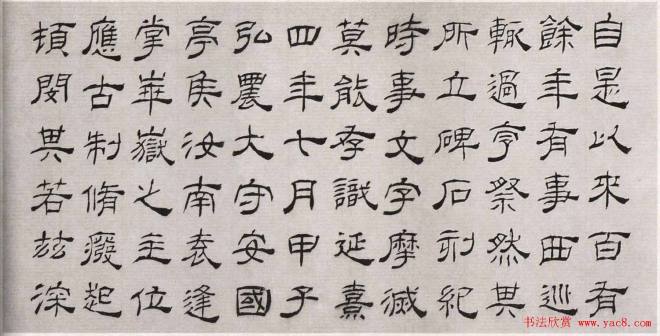 自是以來百有
餘年有事西巡
輒過亨祭然其
所立碑石刻紀
時事文字摩滅
莫能存識延熹
四年七月甲子
弘農大守安國
亭侯汝南袁逢
掌華嶽之主位
應古制脩廢起
頓閔其若茲深
书法欣赏 www.yac8.com